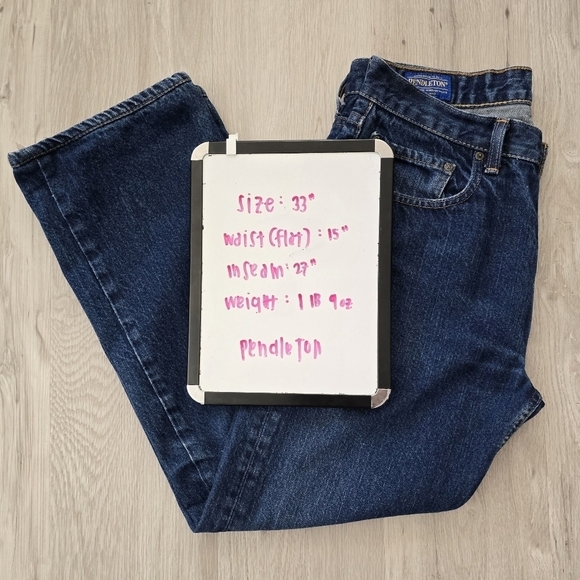 PENDLETON
size: 33"
waist(flat): 15"
inseam: 27"
weight: 1 lB 9 oz
pendleton